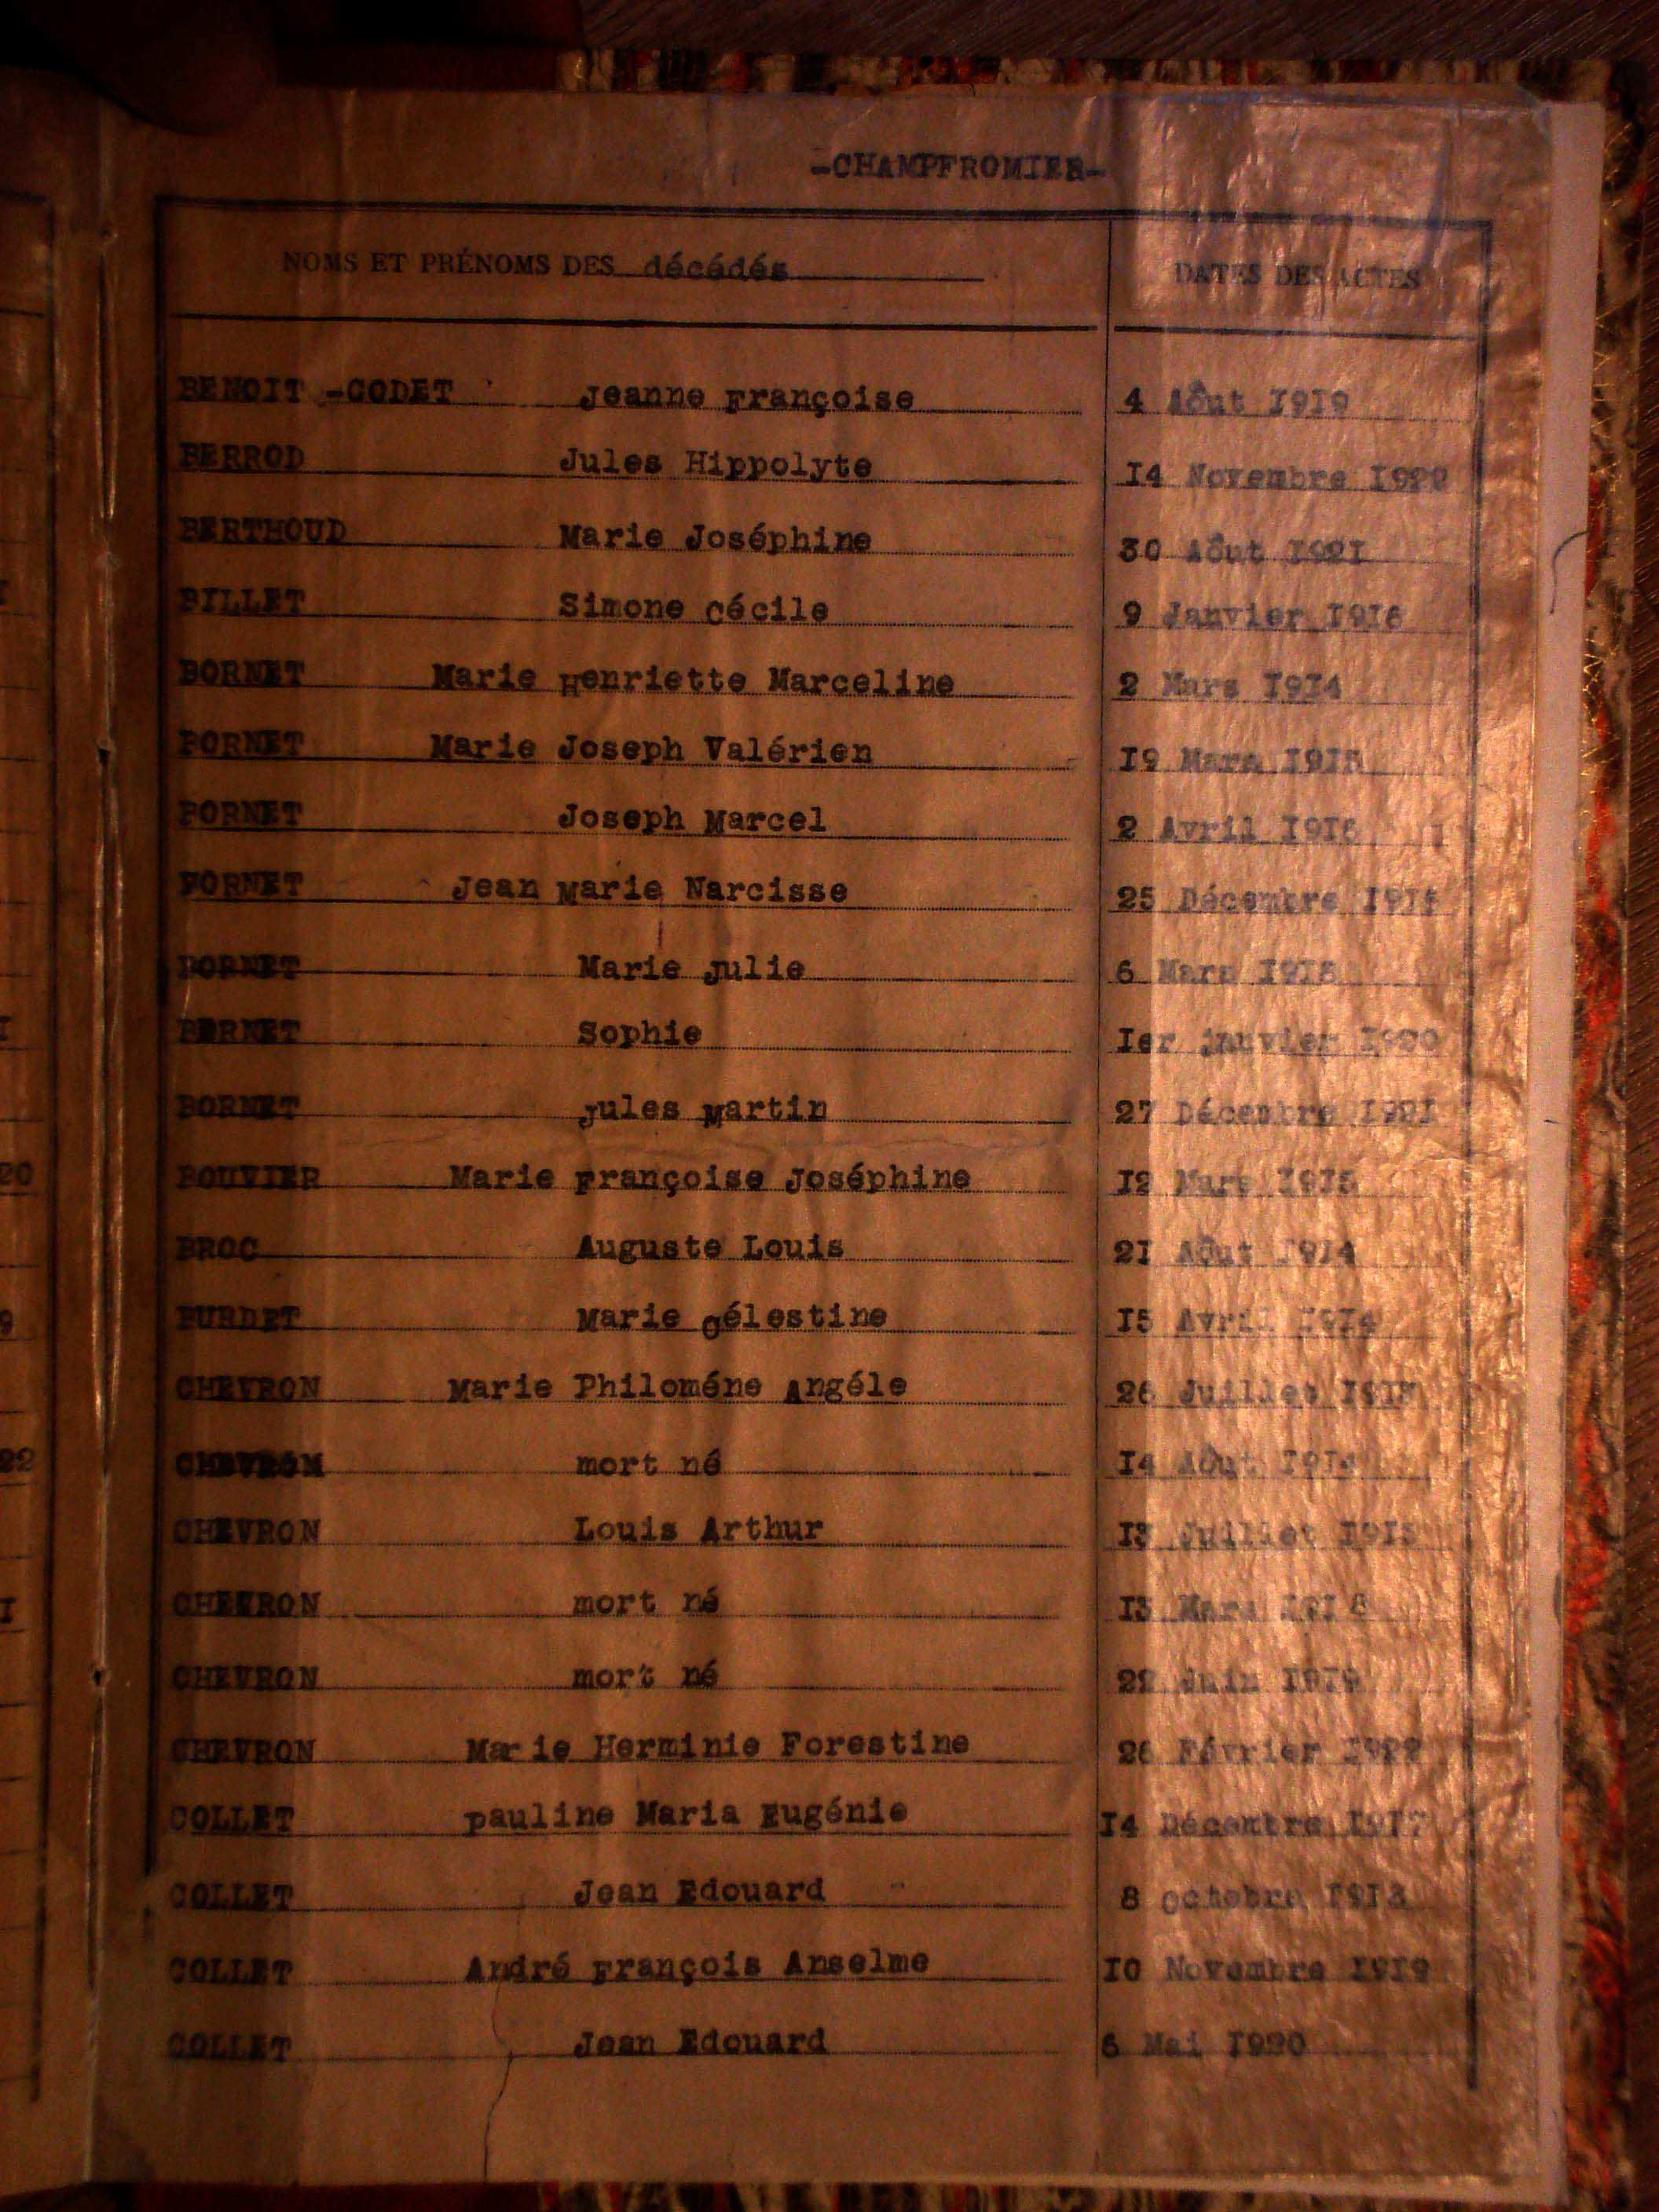 -CHAMPFROMIER-
NOMS ET PRÉNOMS DES décédés DATES DES ACTES
BENOIT -GODET Jeanne Françoise 4 Aôut I9I9
BERROD Jules Hippolyte I4 Novembre I922
BERTHOUD Marie Joséphine 30 Aôut I92I
BILLET Simone Cécile 9 Janvier
BORNET Marie Henriette Marceline 2 Mars I9I4
BORNET Marie Joseph Valérien I9 Mars I9I5
BORNET Joseph Marcel 2 Avril I9I6
BORNET Jean Marie Narcisse 25 Décembre
BORNET Marie Julie 6 Mars
BORNET Sophie Ier janvier I920
BORNET Jules Martin 27 Décembre I92I
BOUVIER Marie Françoise Joséphine I2 Mars I9I5
BROC Auguste Louis 2I Aôut I9I4
BURDET Marie Célestine I5 Avril I9I4
CHEVRON Marie Philoméne Angéle 26 Juillet
CHEVRON mort né I4 Aôut I9I4
CHEVRON Louis Arthur I3 Juillet
CHEVRON mort né Mars
CHEVRON mort né 22 Juin I9I9
CHEVRON Marie Herminie Forestine 26 Février I922
COLLET pauline Maria Eugénie I4 Décembre I9I7
COLLET Jean Edouard 8 octobre
COLLET André François Anselme I0 Novembre I9I9
COLLET Jean Edouard 6 Mai I920
20
9
22
I